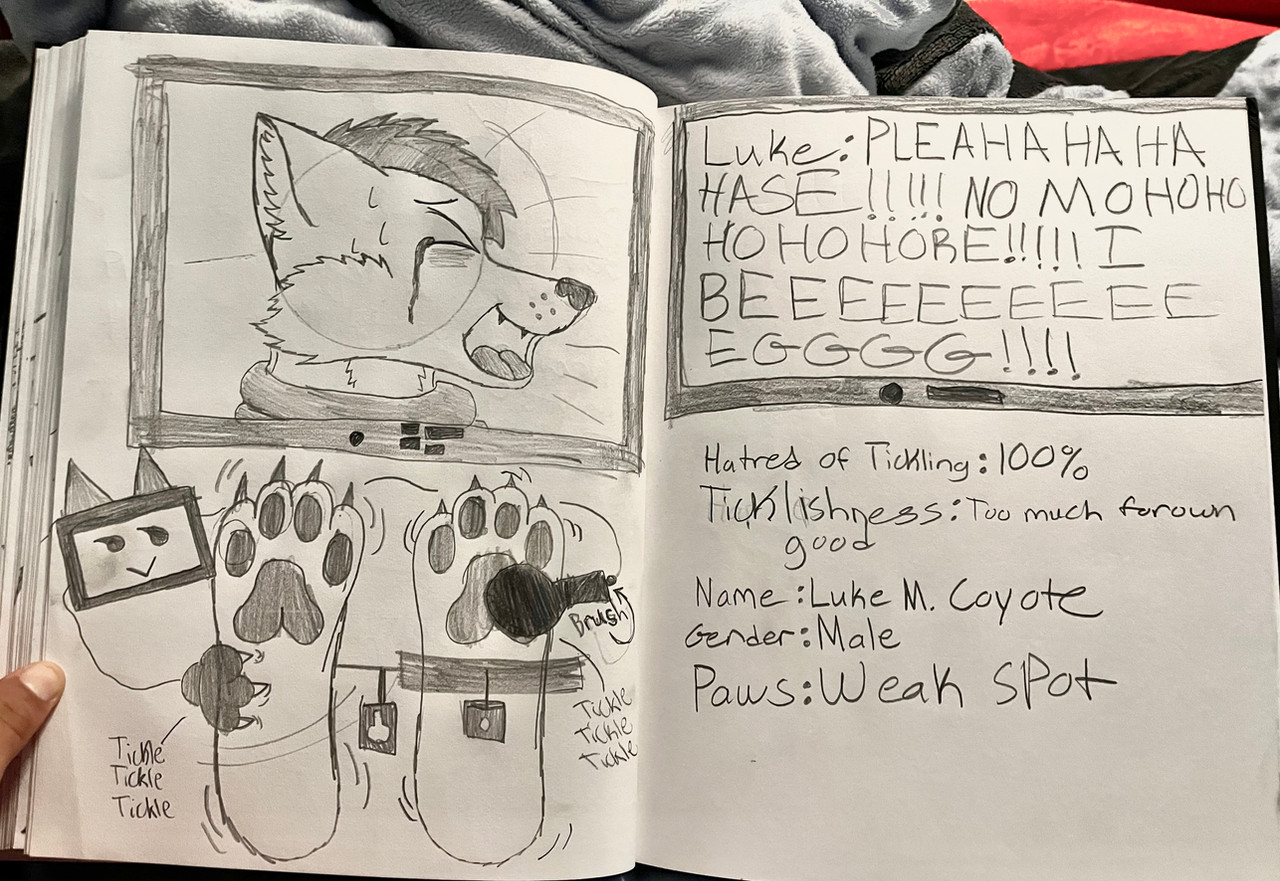 Brush
Tickle
Tickle
Tickle
Tickle
Tickle
Tickle
Luke: PLEAHA HA HA
HASE!!!!! NO MOHOHO
HOHOHORE!!!!! I
BEEEEEEEEEE
EGGGG!!!!
Hatred of Tickling: 100%
Ticklishness: Too much for own
good
Name: Luke M. Coyote
Gender: Male
Paws: Weak spot